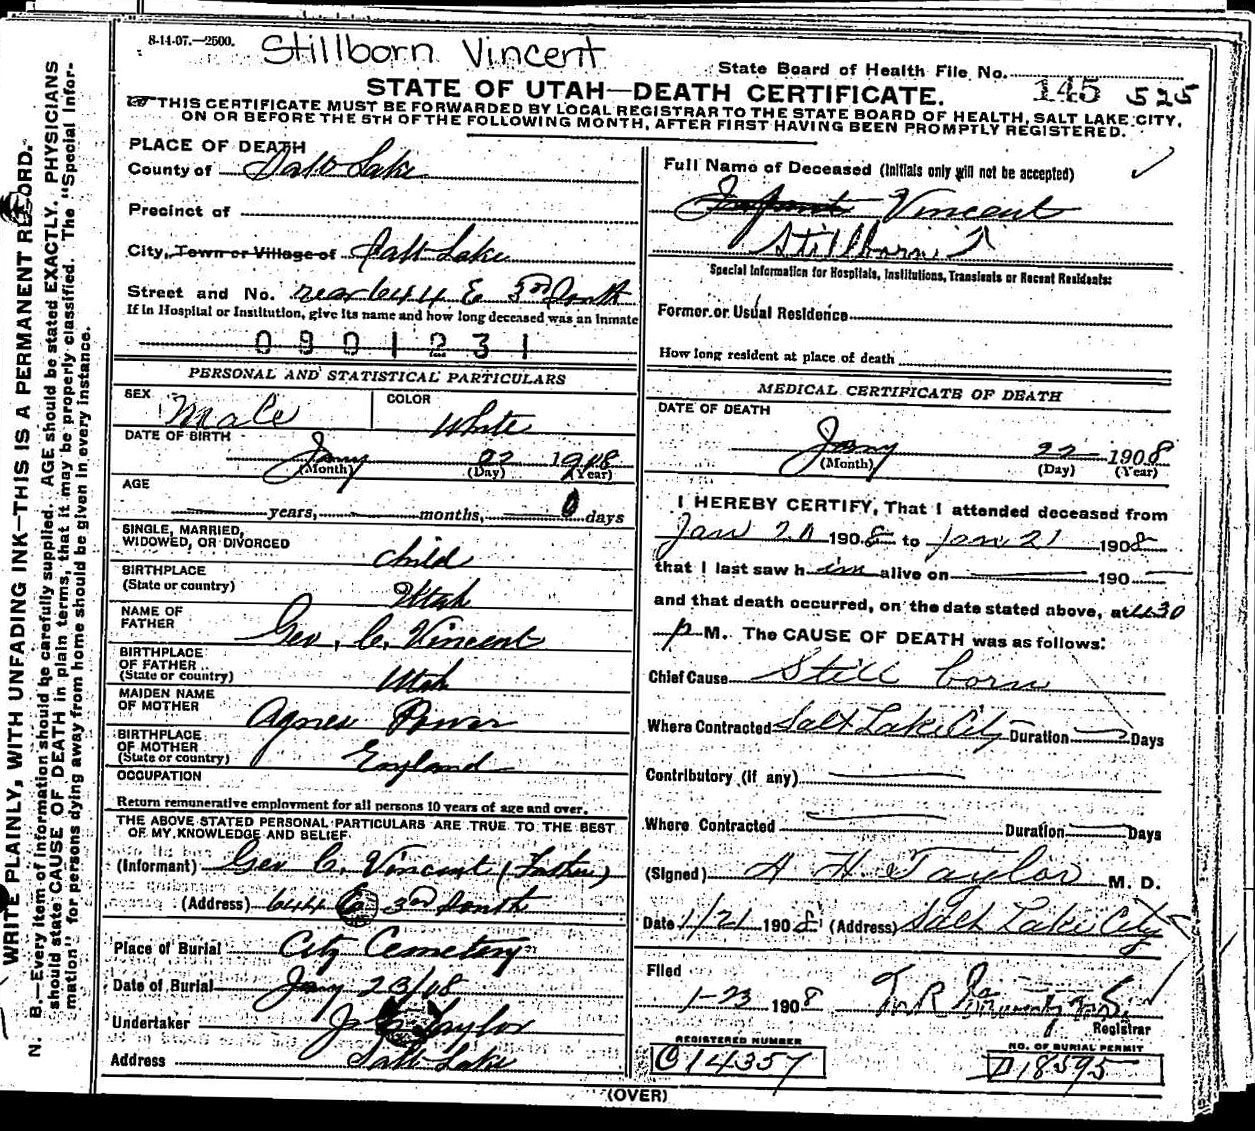 8-14-07.—2500. Stillborn Vincent
State Board of Health File No. 145 525
STATE OF UTAH—DEATH CERTIFICATE.
THIS CERTIFICATE MUST BE FORWARDED BY LOCAL REGISTRAR TO THE STATE BOARD OF HEALTH, SALT LAKE CITY,
ON OR BEFORE THE 5TH OF THE FOLLOWING MONTH, AFTER FIRST HAVING BEEN PROMPTLY REGISTERED.
PLACE OF DEATH
County of Salt Lake
Precinct of
City, Town or Village of Salt Lake
Street and No. rear 644 E 3rd South
If in Hospital or Institution, give its name and how long deceased was an inmate
0901231
PERSONAL AND STATISTICAL PARTICULARS
SEX Male COLOR White
DATE OF BIRTH Jany 22 1908
(Month) (Day) (Year)
AGE
years, months, 0 days
SINGLE, MARRIED,
WIDOWED, OR DIVORCED child
BIRTHPLACE
(State or country) Utah
NAME OF
FATHER Geo. C. Vincent
BIRTHPLACE
OF FATHER
(State or country) Utah
MAIDEN NAME
OF MOTHER Agnes Power
BIRTHPLACE
OF MOTHER
(State or country) England
OCCUPATION
Return remunerative employment for all persons 10 years of age and over.
THE ABOVE STATED PERSONAL PARTICULARS ARE TRUE TO THE BEST
OF MY KNOWLEDGE AND BELIEF
(Informant) Geo C. Vincent (Father)
(Address) 644 E 3rd South
Place of Burial City Cemetery
Date of Burial Jany 23/08
Undertaker Taylor
Address Salt Lake
Full Name of Deceased (Initials only will not be accepted)
Infant Vincent
Stillborn
Special Information for Hospitals, Institutions, Transients or Recent Residents:
Former or Usual Residence
How long resident at place of death
MEDICAL CERTIFICATE OF DEATH
DATE OF DEATH
Jany 22 1908
(Month) (Day) (Year)
I HEREBY CERTIFY, That I attended deceased from
Jan 20 1908 to Jan 21 1908
that I last saw him alive on 190
and that death occurred, on the date stated above, at 4.30
P M. The CAUSE OF DEATH was as follows:
Chief Cause Still born
Where Contracted Salt Lake City Duration Days
Contributory (if any)
Where Contracted Duration Days
(Signed) A H Taylor M. D.
Date 1/21 1908 (Address) Salt Lake City
Filed
1-23 1908
Registrar
REGISTERED NUMBER NO. OF BURIAL PERMIT
C 14357 D 18595
(OVER)
WRITE PLAINLY, WITH UNFADING INK—THIS IS A PERMANENT RECORD.
N. B.—Every item of information should be carefully supplied. AGE should be stated EXACTLY. PHYSICIANS
should state CAUSE OF DEATH in plain terms, that it may be properly classified. The "Special Infor-
mation" for persons dying away from home should be given in every instance.